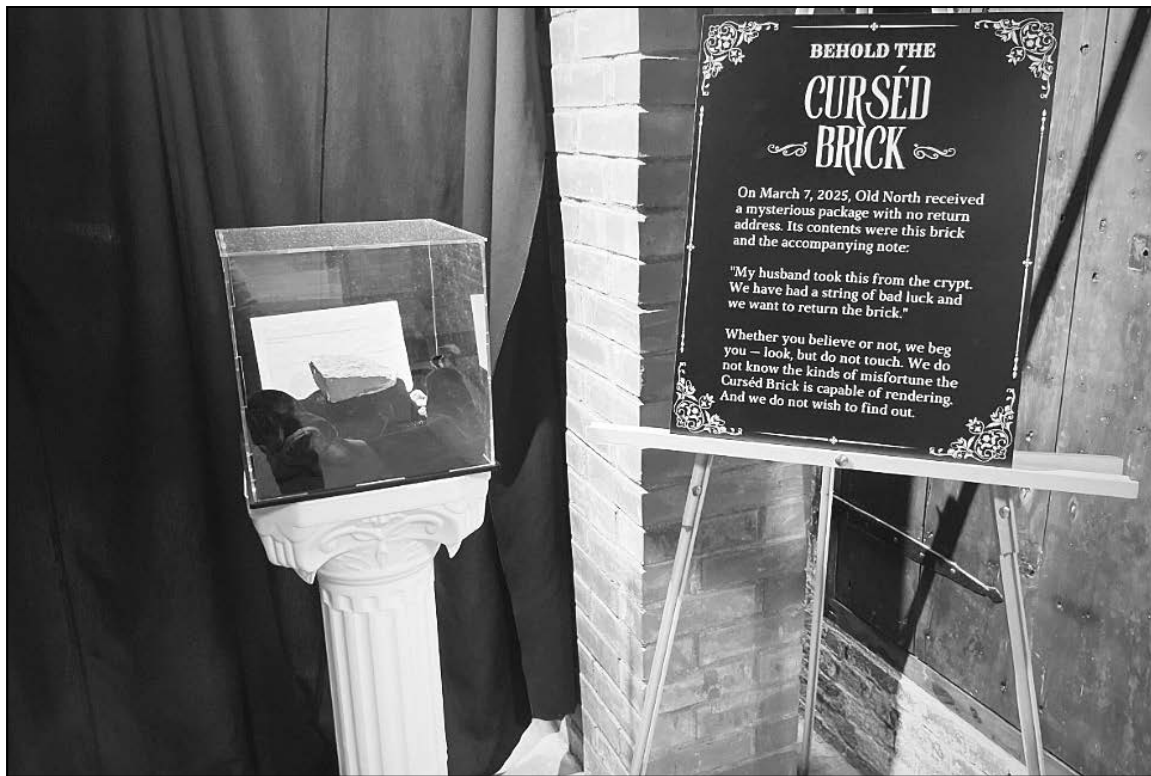 BEHOLD THE
CURSÉD
BRICK
On March 7, 2025, Old North received
a mysterious package with no return
address. Its contents were this brick
and the accompanying note:
"My husband took this from the crypt.
We have had a string of bad luck and
we want to return the brick."
Whether you believe or not, we beg
you — look, but do not touch. We do
not know the kinds of misfortune the
Curséd Brick is capable of rendering.
And we do not wish to find out.